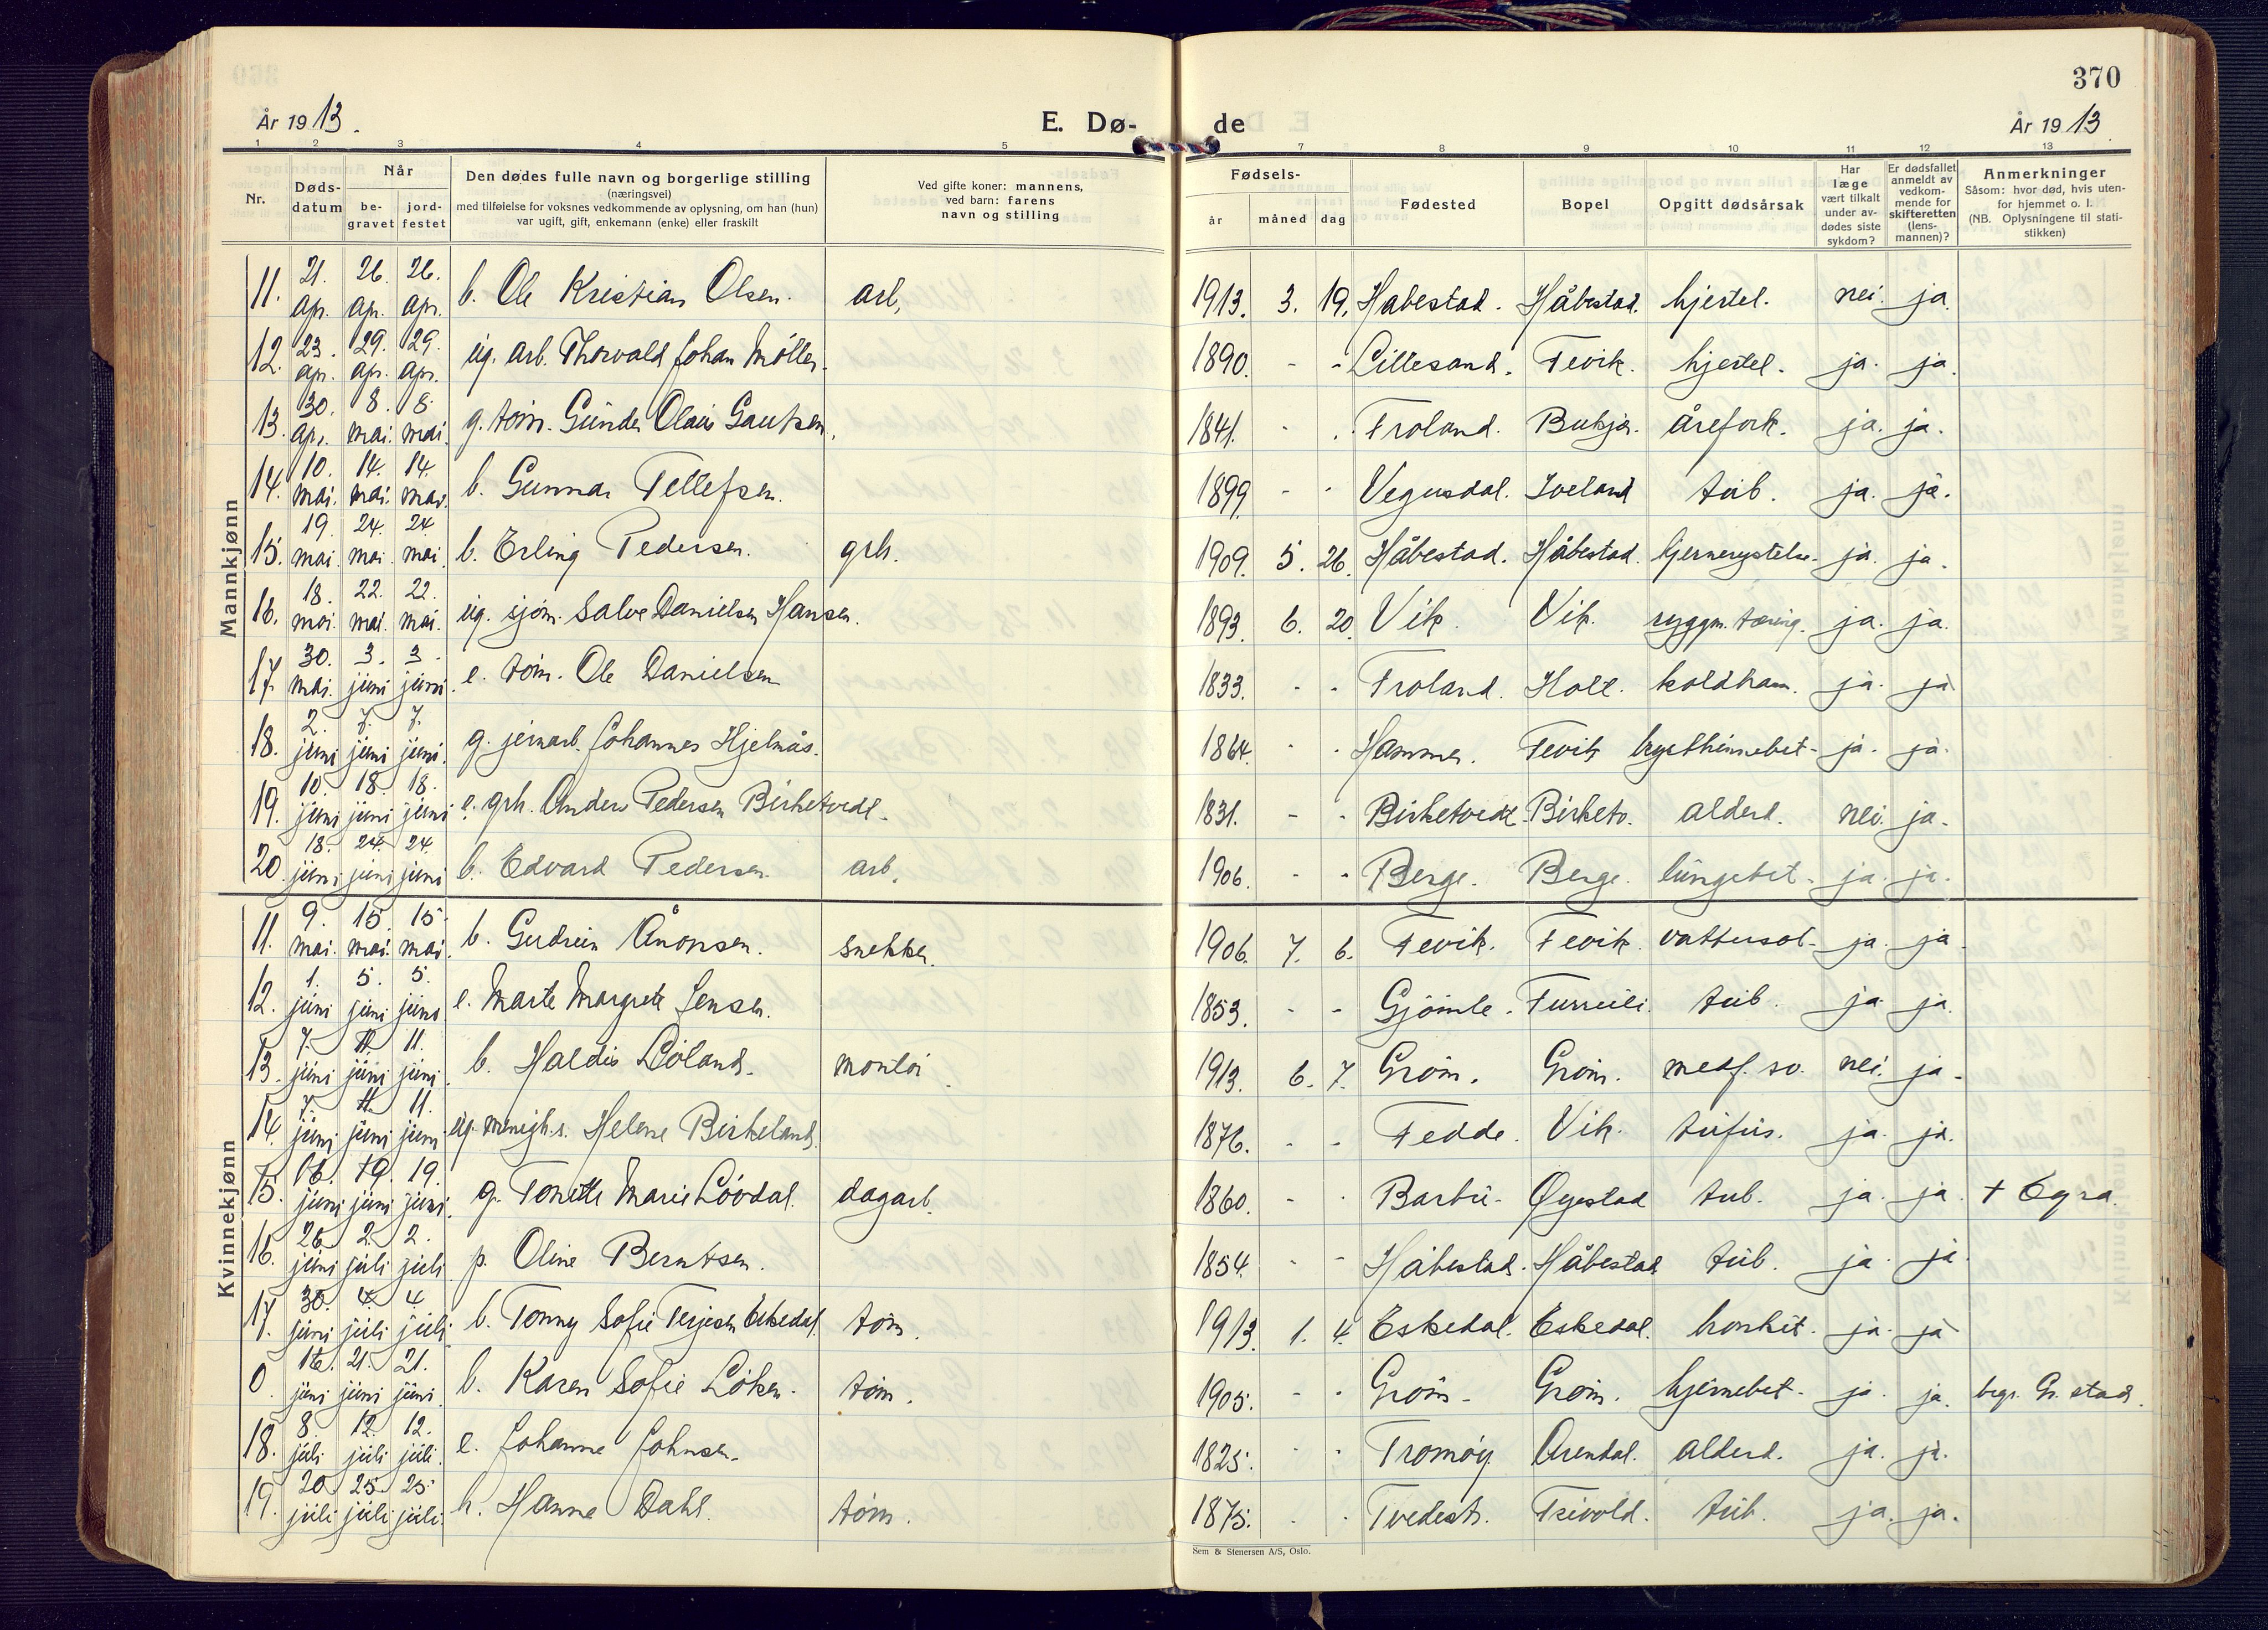 370
År 1913.
E. Dø-
de
År 1913
1 2 3 4 5
7 8 9 10 11 12 13
Nr.
Døds-
datum
Når
be-
gravet
jord-
festet
Den dødes fulle navn og borgerlige stilling
(næringsvei)
med tilføielse for voksnes vedkommende av oplysning, om han (hun)
var ugift, gift, enkemann (enke) eller fraskilt
Ved gifte koner: mannens,
ved barn: farens
navn og stilling
Fødsels-
år måned dag
Fødested
Bopel
Opgitt dødsårsak
Har
læge
vært tilkalt
under av-
dødes siste
sykdom?
Er dødsfallet
anmeldt av
vedkom-
mende for
skifteretten
(lens-
mannen)?
Anmerkninger
Såsom: hvor død, hvis uten-
for hjemmet o. l.
(NB. Oplysningene til stati-
stikken)
Mannkjønn
11. 21. apr. 26. apr. 26. apr. b. Ole Kristian Olsen. arb. 1913. 3. 19. Håbestad. Håbestad. hjertel. nei. ja.
12. 23. apr. 29. apr. 29. apr. ug. arb. Thorvald Johan Møller. 1890. - - Lillesand. Fevik. hjertel. ja. ja.
13. 30. apr. 8. mai. 8. mai. g. tøm. Gunder Olaus Gautsen. 1841. - . Froland. Bukjer. årefork. ja. ja.
14. 10. mai. 14. mai. 14. mai. b. Gunnar Tellefsen. 1899 - - Vegusdal. Iveland tub. ja. ja.
15. 19. mai. 24. mai. 24. mai b. Erling Pedersen. grb. 1909. 5. 26. Håbestad. Håbestad. hjernerystelse. ja. ja.
16. 18. mai. 22. mai. 22. mai. ug. sjøm. Salve Danielsen Hansen. 1893. 6. 20. Vik. Vik. ryggm. tæring. ja. ja.
17. 30. mai. 3. juni 3. juni. e. tøm. Ole Danielsen 1833. - - Froland. Holt. koldbran. ja. ja
18. 2. juni 7. juni 7. juni. g. jernarb. Johannes Hjelnås. 1864. - - Hammer. Fevik brysthinnebet. ja. ja.
19. 10. juni 18. juni 18. juni e. grb. Anders Pedersen Birketvedt. 1831. - - Birketvedt. Birketv. alderd. nei. ja.
20. 18. juni 24. juni 24. juni b. Edvard Pedersen. arb. 1906. - - Berge. Berge. lungebet. ja. ja.
Kvinnekjønn
11. 9. mai. 15. mai. 15. mai. b. Gudrun Ånonsen. snekker. 1906. 7. 6. Fevik. Fevik. vattersot. ja. ja.
12. 1. juni 5. juni 5. juni e. Marte Margrete Jensen. 1853. - - Gjømle. Furruli. tub. ja. ja.
13. 7. juni 11. juni 11. juni. b. Haldis Løland. montør. 1913. 6. 7. Grøm. Grøm. medf. sv. nei. ja.
14. 7. juni 11. juni 11. juni ug. menigh.s. Helene Birkeland. 1876. - - Fedde. Vik. tufus. ja. ja.
15. 16. juni 19. juni 19. juni. g. Tonette Marie Løvdal. dagarb. 1860. - - Barbu. Øyestad tub. ja. ja. + Egra.
16. 26. juni 2. juli 2. juli. p. Oline Berntsen. 1854. - - Håbestad. Håbestad tub. ja. ja.
17. 30. juni 4. juli 4. juli b. Tonny Sofie Terjesen Eskedal. tøm. 1913. 1. 4. Eskedal. Eskedal. bronkit. ja. ja
0. 16. juni 21. juni 21. juni. b. Karen Sofie Løken. tøm. 1905. - - Grøm. Grøm. hjernebet. ja. ja. begr. Gr.stad.
18. 8. juli 12. juli 12. juli. e. Johanne Johnsen. 1825. - - Tromøy Arendal. alderd. ja. ja.
19. 20. juli 25. juli 25. juli. h. Hanne Dahl. tøm. 1875. - - Tvedestr. Trivold. tub. ja. ja.
Sem & Stenersen A/S, Oslo.